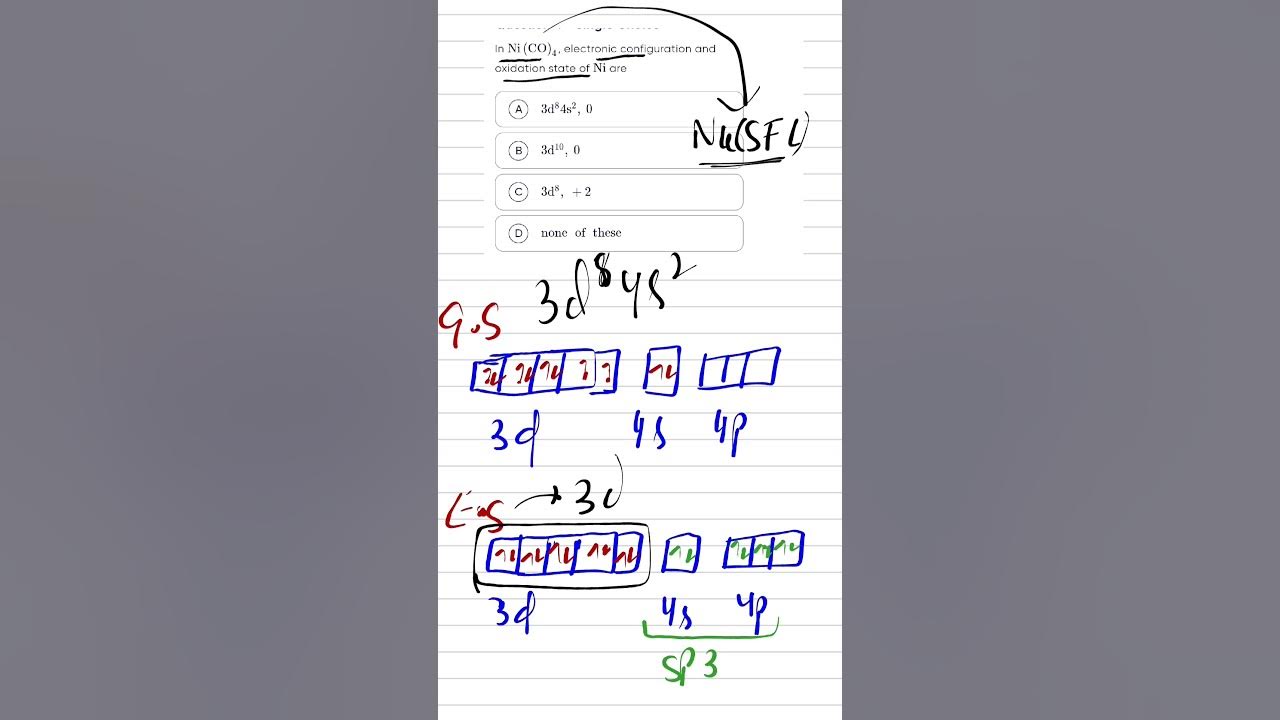 In Ni (CO)₄, electronic configuration and
oxidation state of Ni are
A 3d⁸4s², 0
B 3d¹⁰, 0
C 3d⁸, +2
D none of these
3d⁸4s²
G.S
3d 4s 4p
3d
3d 4s 4p
SP3